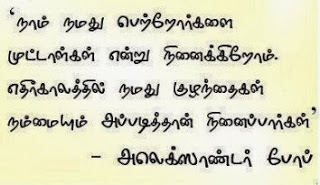 ‘நாம் நமது பெற்றோர்களை
முட்டாள்கள் என்று நினைக்கிறோம்.
எதிர்காலத்தில் நமது குழந்தைகள்
நம்மையும் அப்படித்தான் நினைப்பார்கள்’
– அலெக்ஸாண்டர் போப்